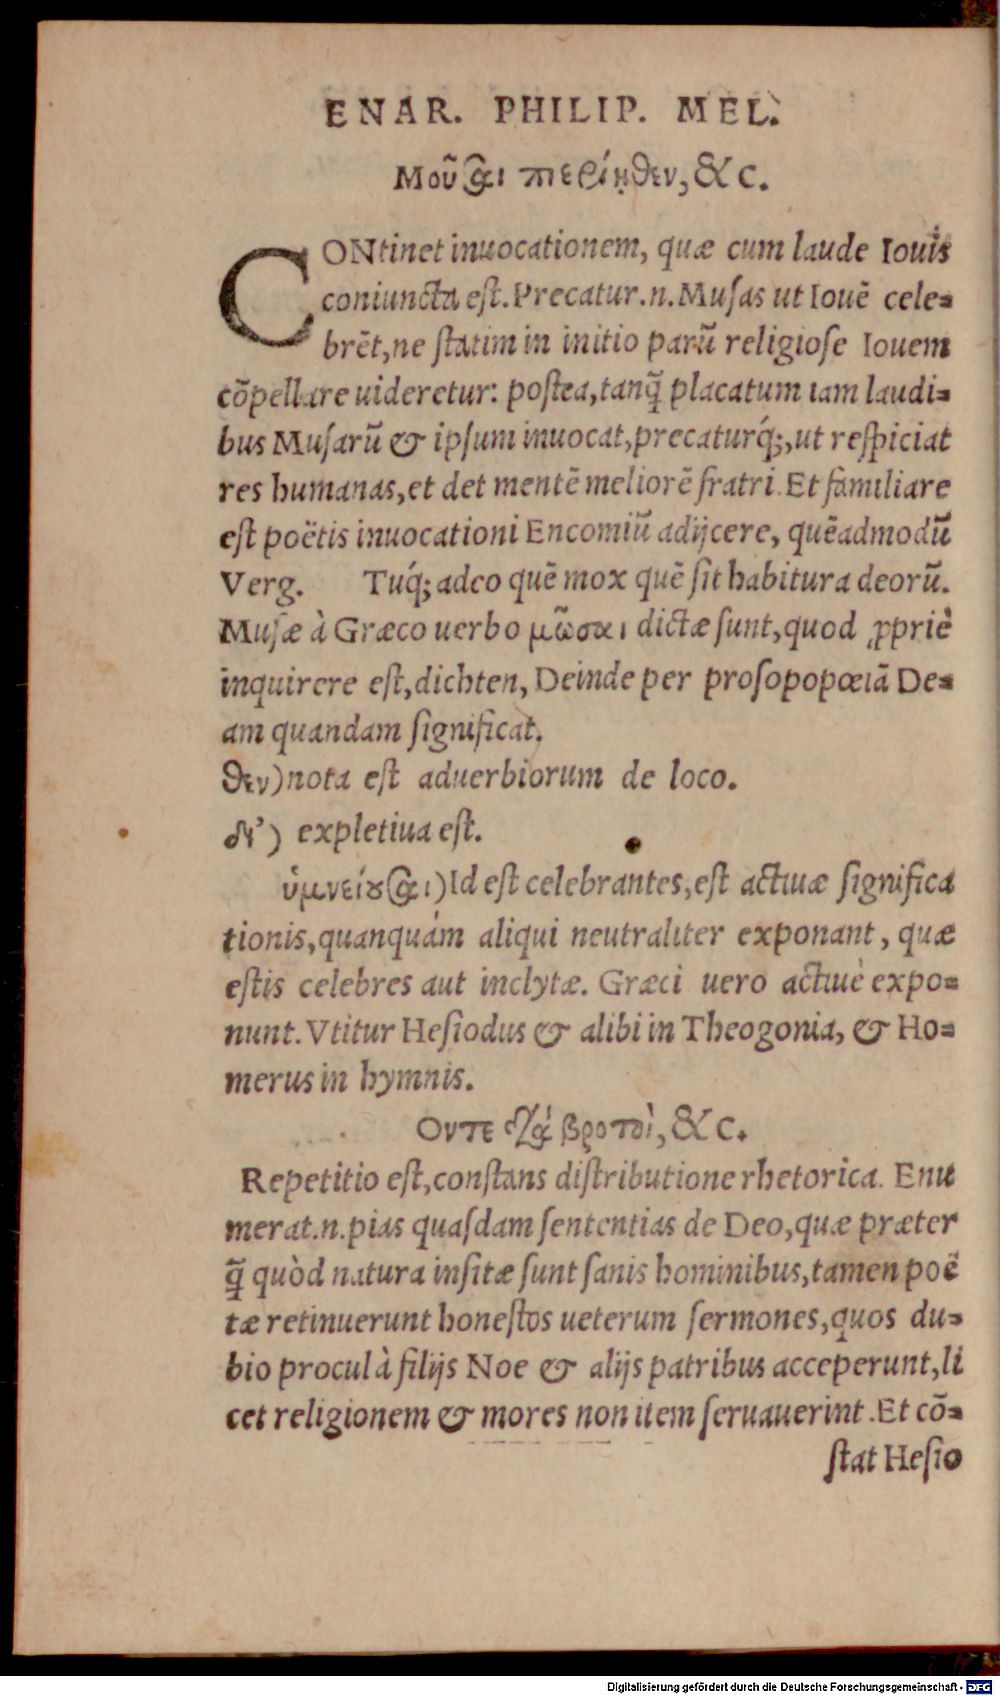 ENAR. PHILIP. MEL.
Μοῦσαι πιερίηθεν, &c.
CONtinet inuocationem, quæ cum laude Iouis
coniuncta est. Precatur .n. Musas ut Iouē cele=
brēt, ne statim in initio parū religiose Iouem
cōpellare uideretur: postea, tanq̃ placatum iam laudi=
bus Musarū & ipsum inuocat, precaturq́;, ut respiciat
res humanas, et det mentē meliorē fratri. Et familiare
est poëtis inuocationi Encomiū adijcere, quēadmodū
Verg. Tuq́; adeo quē mox quē sit habitura deorū.
Musæ à Græco uerbo μῶσαι dictæ sunt, quod ꝓpriè
inquirere est, dichten, Deinde per prosopopœiā De=
am quandam significat.
θεν) nota est aduerbiorum de loco.
δή) expletiua est.
ὑμνείουσαι) Id est celebrantes, est actiuæ significa
tionis, quanquám aliqui neutraliter exponant, quæ
estis celebres aut inclytæ. Græci uero actiuè expo=
nunt. Vtitur Hesiodus & alibi in Theogonia, & Ho=
merus in hymnis.
Ουτε γὰρ βροτοὶ, &c.
Repetitio est, constans distributione rhetorica. Enu
merat .n. pias quasdam sententias de Deo, quæ præter
q̃ quòd natura insitæ sunt sanis hominibus, tamen poë
tæ retinuerunt honestos ueterum sermones, quos du=
bio procul à filijs Noe & alijs patribus acceperunt, li
cet religionem & mores non item seruauerint. Et cō=
stat Hesio
Digitalisierung gefördert durch die Deutsche Forschungsgemeinschaft - DFG